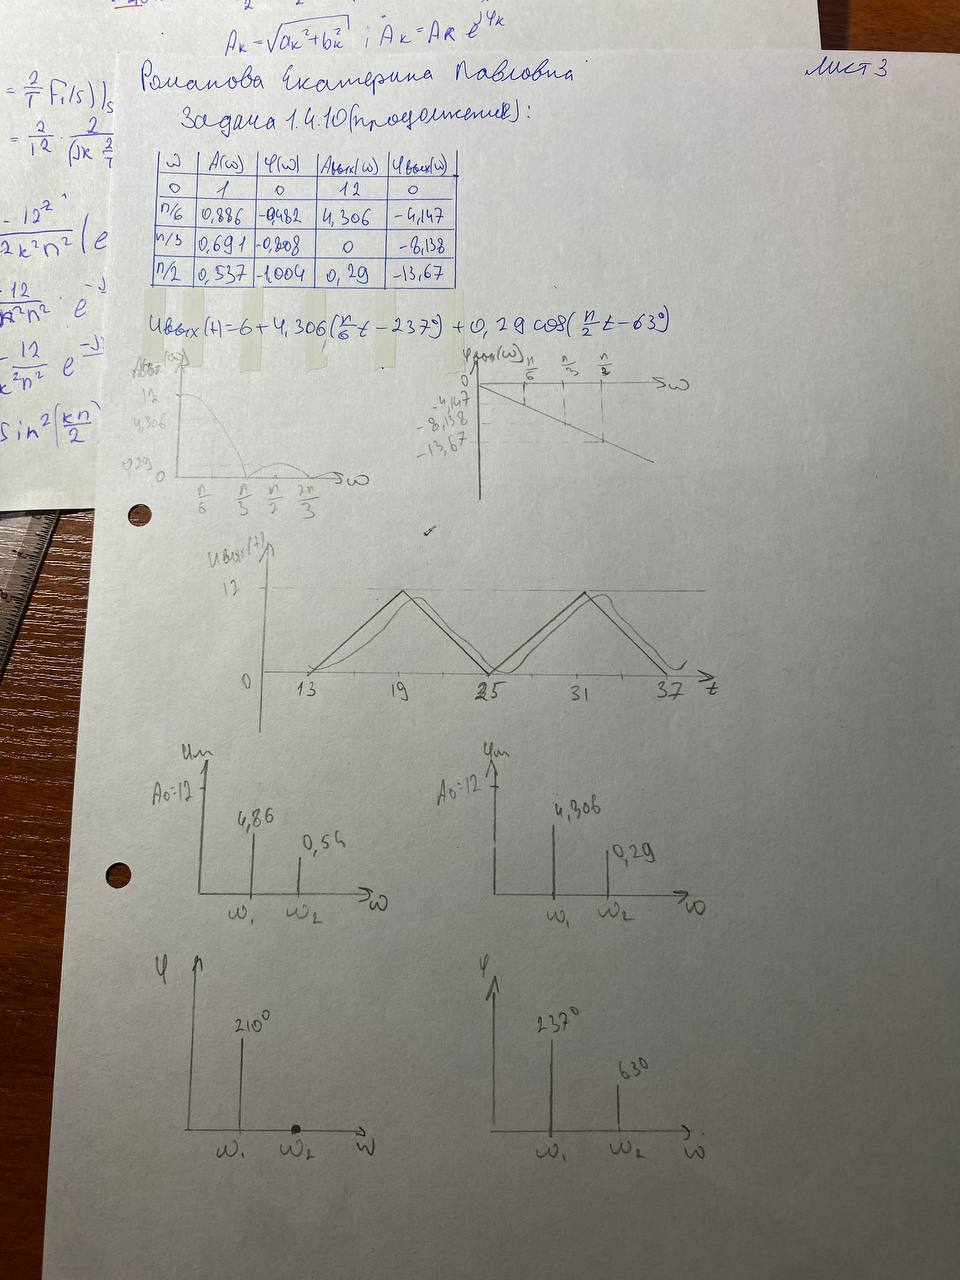 Aк=√aк²+bк² ; Aк=AR e^jφк
= 2/T F₁(s))|s
= 2/12 · 2/(jк 2/T
-12²/2к²п² (e
-12/к²п² · e^-j
-12/к²п² e^-j
sin²(кп/2)
Романова Екатерина Павловна
Лист 3
Задача 1.4.10 (продолжение):
ω A(ω) φ(ω) Aвых(ω) φвых(ω)
0 1 0 12 0
п/6 0,886 -0,482 4,306 -4,147
п/3 0,691 -0,808 0 -8,138
п/2 0,537 -1,004 0,29 -13,67
Uвых(t)=6+4,306(п/6 t-237°)+0,29 cos(п/2 t-63°)
Aвых(ω)
12
4,306
0,29
0
п/6 п/3 п/2 2п/3 ω
φвых(ω) п/6 п/3 п/2
0 ω
-4,147
-8,138
-13,67
Uвых(t)
12
0 13 19 25 31 37 t
Um
A₀=12
4,86
0,54
ω₁ ω₂ ω
Um
A₀=12
4,306
0,29
ω₁ ω₂ ω
φ
210°
ω₁ ω₂ ω
φ
237°
63°
ω₁ ω₂ ω